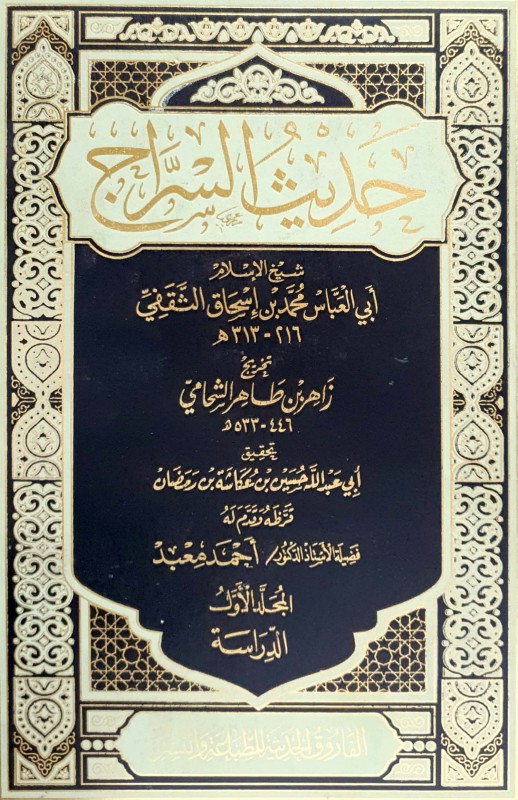 حَدِيْثُ السَّرَّاج
شيخ الإسلام
أبي العَبَّاس مُحمَّد بْن إسْحَاق الثَّقَفِيّ
٢١٦ - ٣١٣ هـ
تخريجُ
زَاهر بْن طَاهر الشّحاميّ
٤٤٦ - ٥٣٣ هـ
تحقيق
أبي عَبد الله حُسَيْن بْن عُكاشَة بْن رَمَضَان
قرَّظهُ وَقدَّم لَهُ
فَضيلَة الأُستَاذ الدّكتُور/ أحْمَد مَعْبد
المُجلَّد الأَوَّلُ
الدِّرَاسَة
الفَارُوق الحَديثَة للطّبَاعَة وَالنّشر